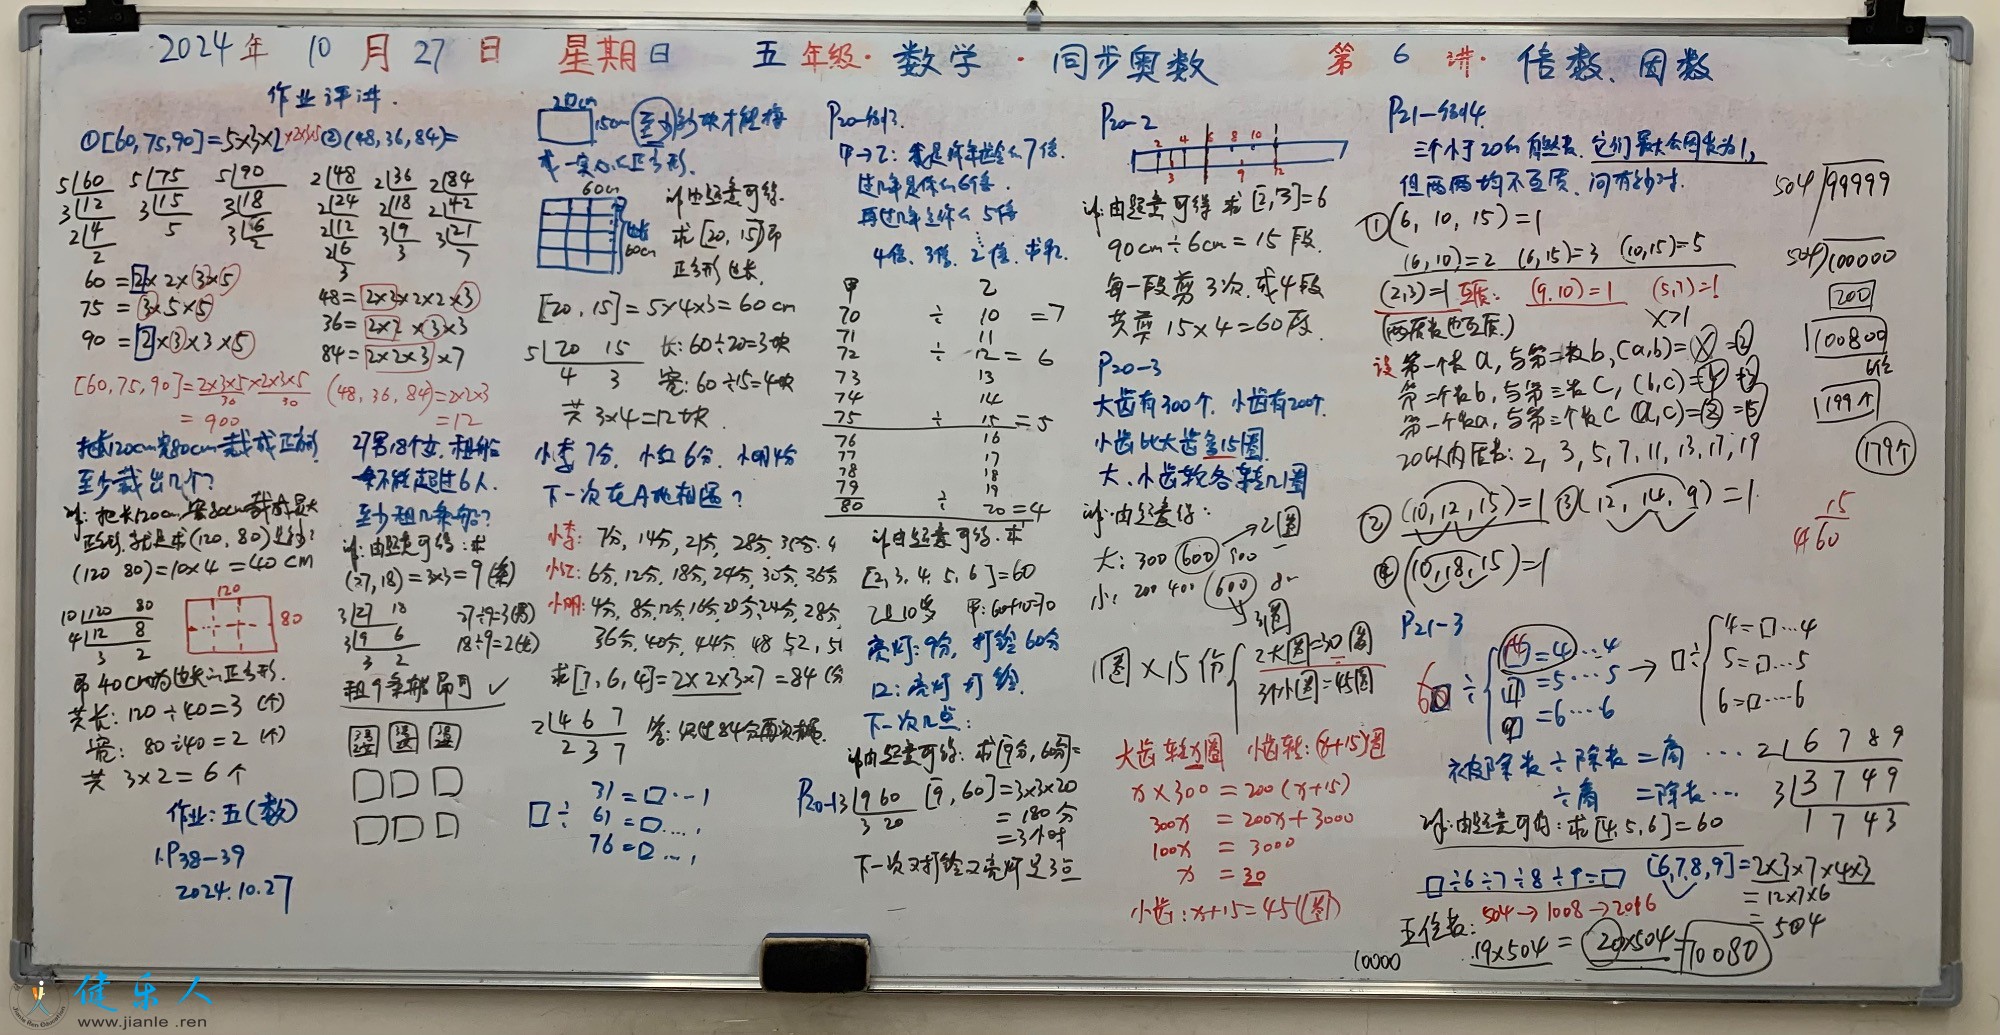 2024年 10月27日 星期日 五年级·数学·同步奥数 第6讲·倍数、因数
作业评讲.
①[60,75,90]=5×3×2×2×3×5 ②(48,36,84)=
5 60 5 75 5 90 2 48 2 36 2 84
3 12 3 15 3 18 2 24 2 18 2 42
2 4 5 3 6 2 12 3 9 3 21
2 2 2 6 3 7
3
60=2×2×3×5
75=3×5×5
90=2×3×3×5
48=2×2×2×2×3
36=2×2×3×3
84=2×2×3×7
[60,75,90]=2×3×5×2×3×5
30 30
=900
(48,36,84)=2×2×3
=12
120cm宽80cm 裁成正方形
至少裁出几个?
把长120cm,宽80cm裁成最大
正方形,就是求(120,80)是多少?
(120 80)=10×4=40cm
10 120 80
4 12 8
3 2
120
80
即40cm为边长的正方形.
共长:120÷40=3(个)
宽:80÷40=2(个)
共 3×2=6个
作业:五(数)
1.P38-39
2024.10.27
27男18个女,租船
不能超过6人.
至少租几条船?
由题意可得:求
(27,18)=3×3=9(条)
3 27 18
3 9 6
3 2
27÷9=3(男)
18÷9=2(女)
租9条船即可 ✓
20cm
15cm 至少多少块才能拼
成一实心正方形.
60cm
60cm
由题意可得.
求[20,15]即
正方形边长.
[20,15]=5×4×3=60cm
5 20 15
4 3
长:60÷20=3块
宽:60÷15=4块
共 3×4=12块.
小李7分,小红6分,小明4分
下一次在A地相遇?
小李:7分,14分,21分,28分,35分.
小红:6分,12分,18分,24分,30分,36分
小明:4分,8分,12分,16分,20分,24分,28分,
36分,40分,44分,48 52,
求[7,6,4]=2×2×3×7=84(分
2 4 6 7
2 3 7
□÷
31=□…1
61=□…,
76=□…,
P20-例3.
甲→乙:我是你年龄的7倍.
过几年是你的6倍.
再过几年是你的5倍
4倍、3倍、2倍.求
甲 乙
70 ÷ 10 =7
71 11
72 ÷ 12=6
73 13
74 14
75 ÷ 15=5
76 16
77 17
78 18
79 19
80 ÷ 20=4
由题意可得.求
[2,3,4,5,6]=60
乙是10岁 甲:60+10=70
亮灯:9分,打铃60分
12:亮灯打铃.
下一次几点:
由题意可得:求[9分,60分]=
P20-13 9 60
3 20
[9,60]=3×3×20
=180分
=3小时
下一次又打铃又亮灯是3点
P20-2
2 4 6 8 10
3 9 12
由题意可得 求[2,3]=6
90cm÷6cm=15段.
每一段剪3次,或4段
共剪15×4=60段.
P20-3
大齿有300个.小齿有200个.
小齿比大齿多15圈.
大、小齿轮各转几圈
由题意得:
大:300 600 900 2圈
小:200 400 600 3圈
1圈×15份
2大圈=30圈
3小圈=45圈
大齿转x圈 小齿转:(x+15)圈
x×300=200(x+15)
300x=200x+3000
100x=3000
x=30
小齿:x+15=45(圈)
P21-例4.
三个小于20的自然数.它们最大公因数为1,
但两两均不互质.问有多少对.
①(6,10,15)=1
(6,10)=2 (6,15)=3 (10,15)=5
(2,3)=1互质: (9.10)=1 (5,7)=1
(两质数也互质.) x>1
设第一个数a,与第二数b,(a,b)=x=2
第二个数b,与第三数c,(b,c)=y=3
第一个数a,与第三个数c (a,c)=z=5
20以内质数:2,3,5,7,11,13,17,19
②(10,12,15)=1 ③(12,14,9)=1
④(10,18,15)=1
P21-3
÷ =4…4
=5…5
=6…6
□÷ 4=□…4
5=□…5
6=□…6
被除数÷除数=商…
÷商=除数…
由题意可得:求[4,5,6]=60
□÷6÷7÷8÷9=□
[6,7,8,9]=2×3×7×4×3
=12×7×6
=504
2 6 7 8 9
3 3 7 4 9
1 7 4 3
五位数:504→1008→2016
10000 19×504=20×504=10080
504 99999
504 100000
200
100800
6位
199个
179个
15
4 60
健乐人
www.jianle.ren